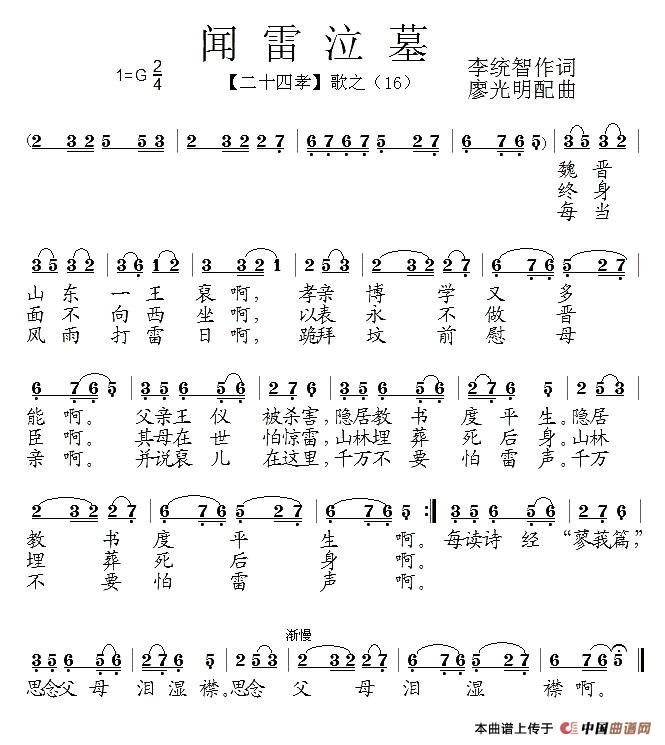 闻雷泣墓
1=G 2/4
【二十四孝】歌之（16）
李统智作词
廖光明配曲
(2 32 5 53 | 2 32 2 27 | 67 6767 | 6 76 5) | 35 32
魏晋
终身
每当
35 32 | 36 12 | 3 321 | 2 53 | 2 32 27 | 6 76 5 27
山东一王裒啊，孝亲博学又多
面不向西坐啊，以表永不做晋
风雨打雷日啊，跪拜坟前慰母
6 76 5 | 35 6 56 | 27 6 | 2 32 27 | 6 76 5 | 2 53
能啊。父亲王仪被杀害，隐居教书度平生。隐居
臣啊。其母在世怕惊雷，山林埋葬死后身。山林
亲啊。并说裒儿在这里，千万不要怕雷声。千万
2 32 27 | 6 76 5 27 | 6 76 5 :| 35 6 56 | 27 6
教书度平生啊。每读诗经“蓼莪篇，”
埋葬死后身啊。
不要怕雷声啊。
渐慢
35 6 56 | 27 6 5 | 2 53 | 2 32 27 | 6 76 5 27 | 6 76 5
思念父母泪湿襟。思念父母泪湿襟啊。
本曲谱上传于 中国曲谱网